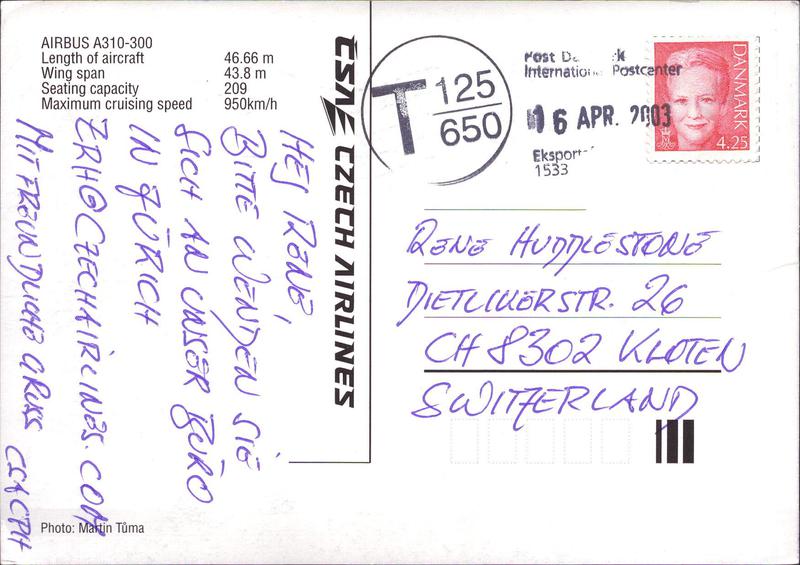 AIRBUS A310-300
Length of aircraft 46.66 m
Wing span 43.8 m
Seating capacity 209
Maximum cruising speed 950km/h
HEJ RENE,
BITTE WENDEN SIE
SICH AN UNSER BÜRO
IN ZÜRICH
ZRH@CZECHAIRLINES.COM
MIT FREUNDLICHE GRUSS CSA CPH
Photo: Martin Tůma
ČSA CZECH AIRLINES
T 125
650
Post
International Postcenter
16 APR. 2003
1533
DANMARK
4.25
RENE HUDDLESTONE
DIETLIKERSTR. 26
CH 8302 KLOTEN
SWITZERLAND